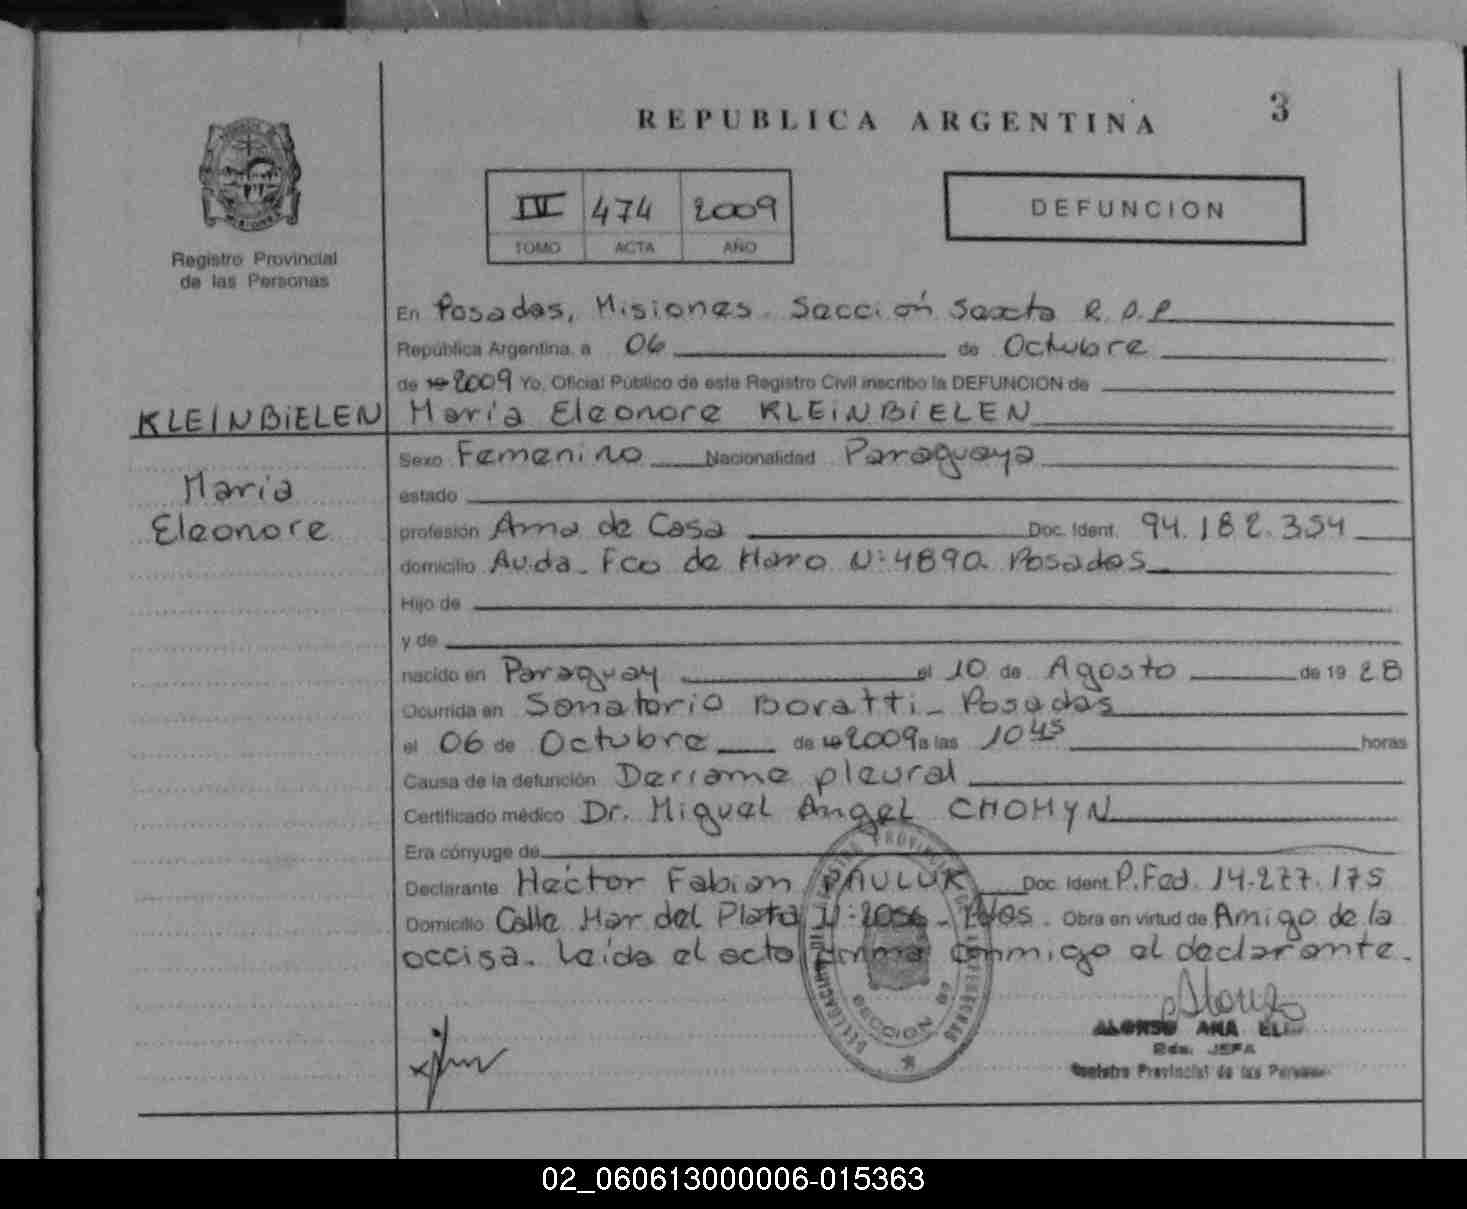 REPUBLICA ARGENTINA
3
IV 474 2009
TOMO ACTA AÑO
DEFUNCION
Registro Provincial
de las Personas
En Posadas, Misiones. Sección Sexta R.P.P.
República Argentina, a 06 de Octubre
de 19 2009 Yo, Oficial Público de este Registro Civil inscribo la DEFUNCION de
KLEINBiELEN
María Eleonore KLEiNBiELEN
María
Eleonore
Sexo Femenino Nacionalidad Paraguaya
estado
profesión Ama de Casa Doc. Ident. 94.182.354
domicilio Avda. Fco de Haro N:4890. Posadas
Hijo de
y de
nacido en Paraguay el 10 de Agosto de 19 28
Ocurrida en Sanatorio Boratti - Posadas
el 06 de Octubre de 19 2009 a las 10 45 horas
Causa de la defunción Derrame pleural
Certificado médico Dr. Miguel Angel CHOMYN
Era cónyuge de
Declarante Hector Fabian PAULUK Doc. Ident. P.Fed. 14.277.175
Domicilio Calle Mar del Plata N:2056 - Pdas. Obra en virtud de Amigo de la
occisa. Leída el acta firma conmigo el declarante.
SECCION
ALONSO ANA
JEFA
Registro Provincial de las Personas
02_060613000006-015363